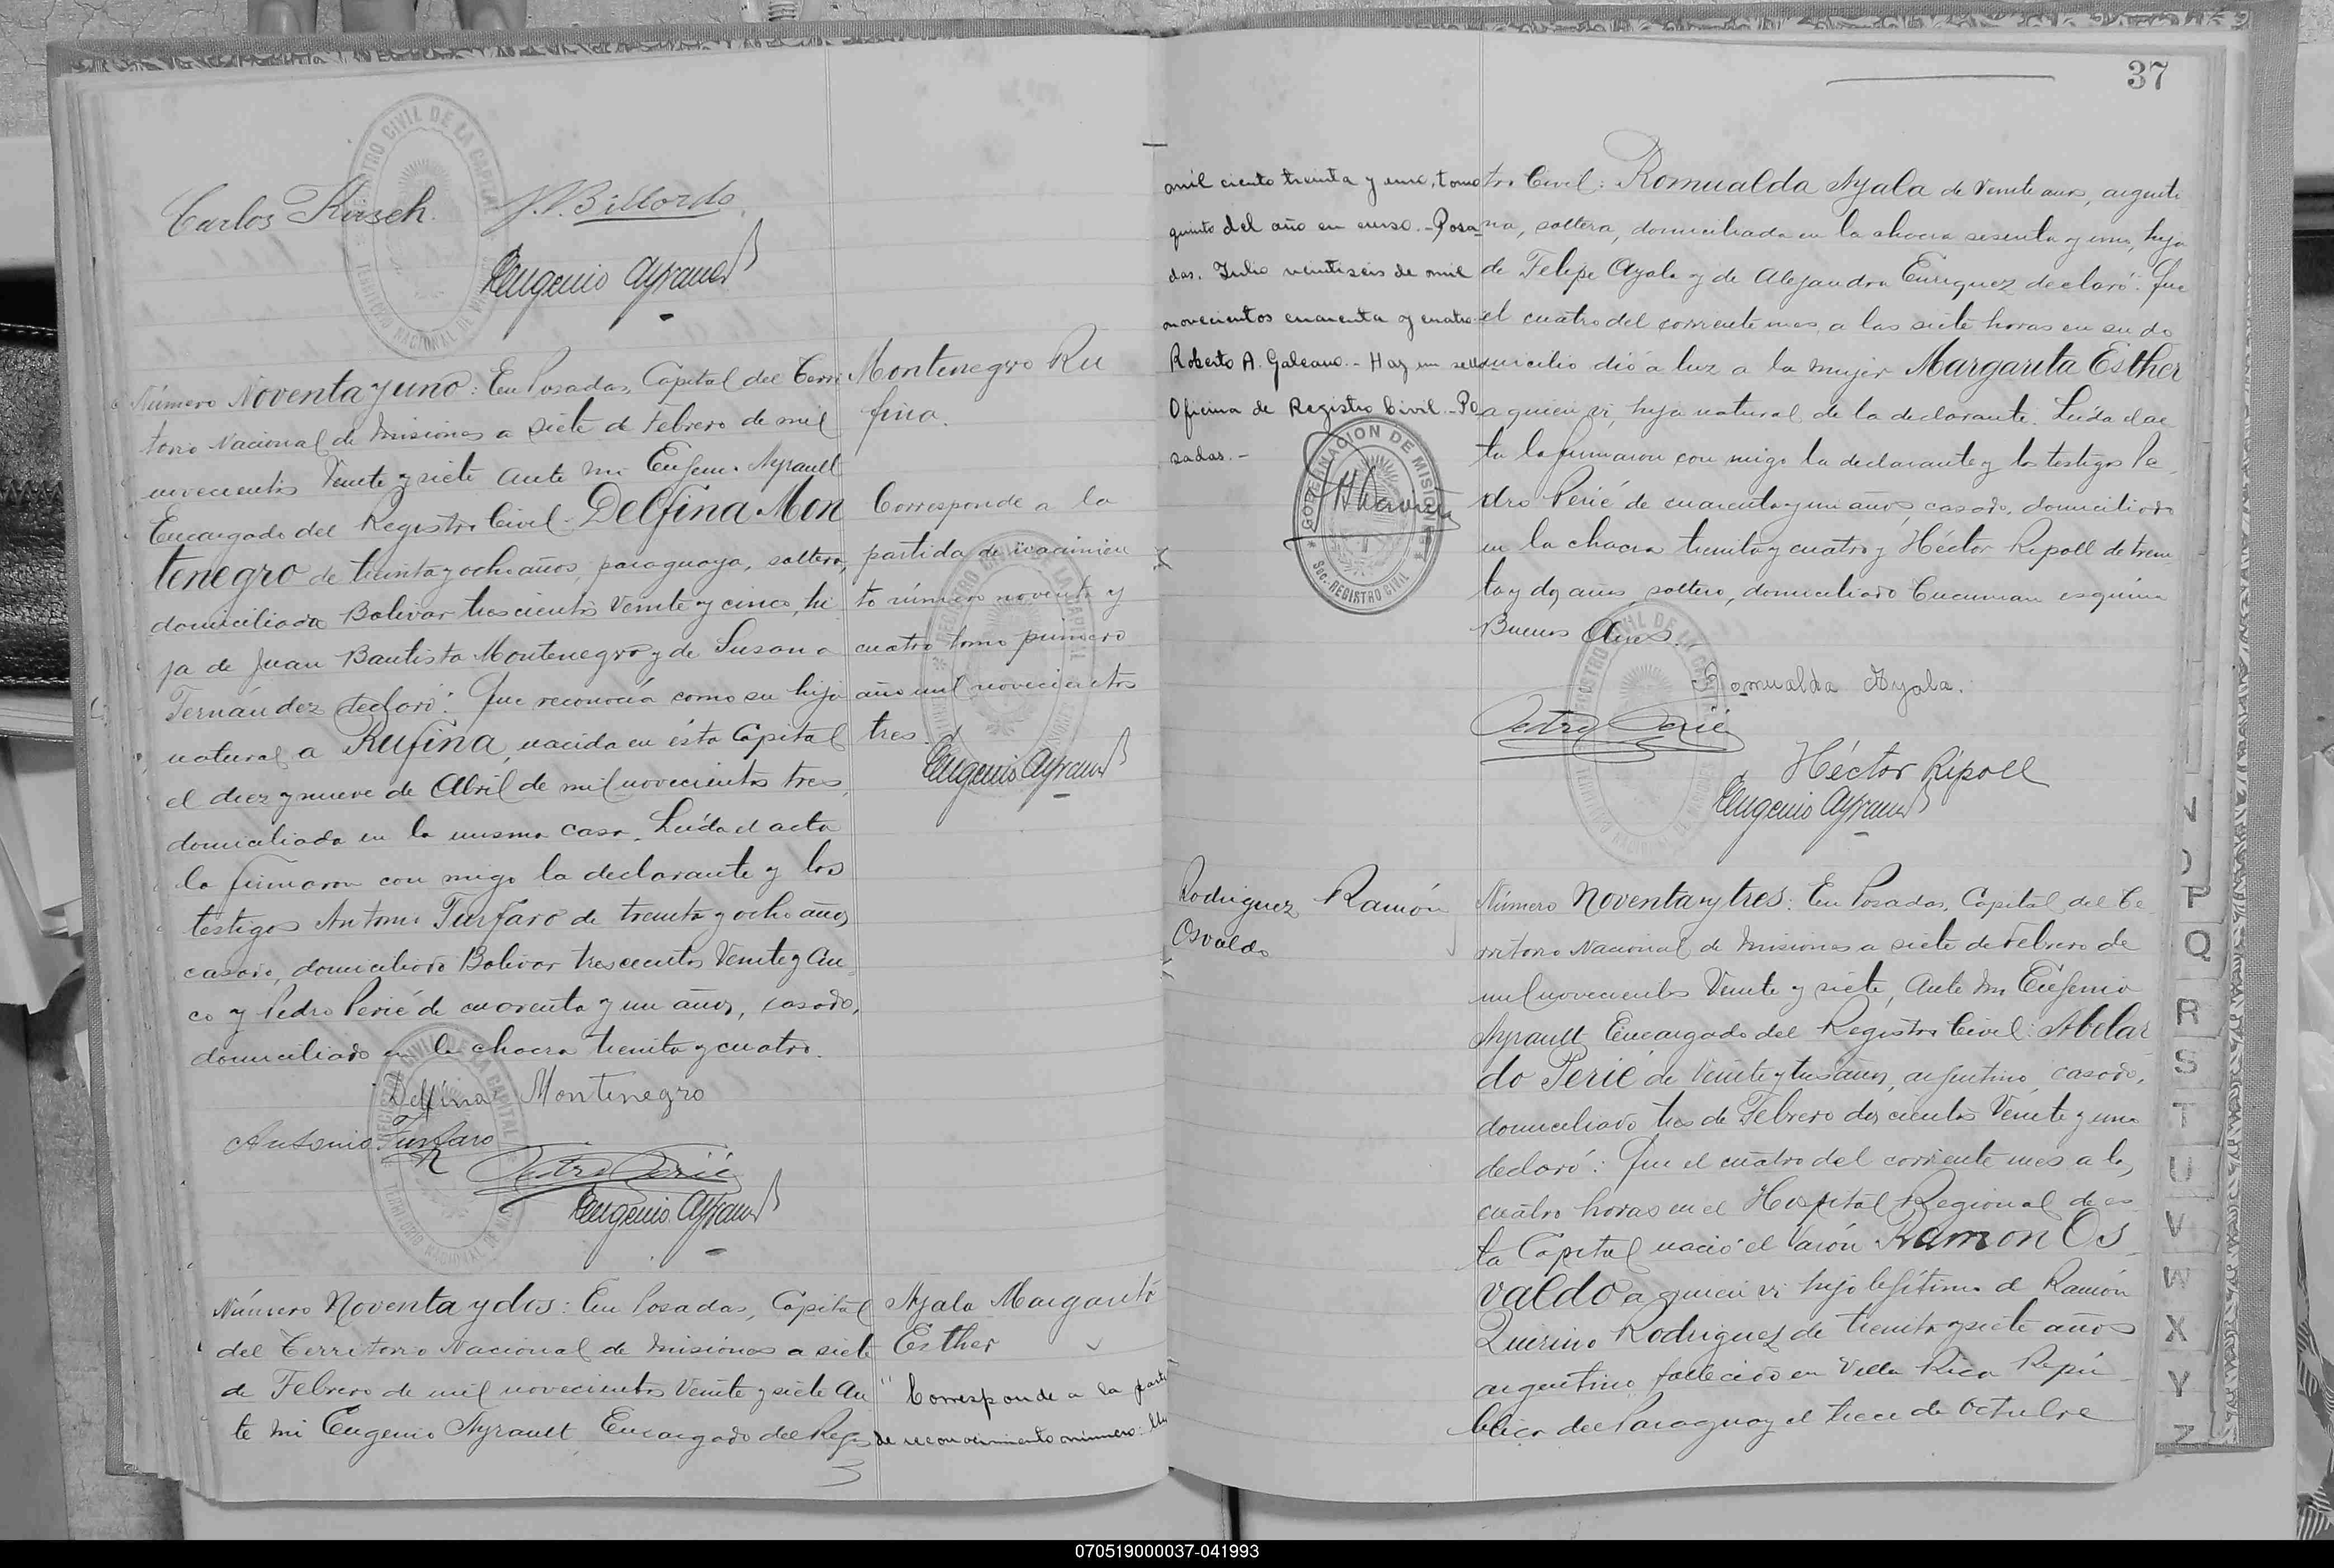 Carlos Kirsch. J. P. Billordo
Eugenio Ayrault
Número Noventa y uno: En Posadas, Capital del Terri
torio Nacional de Misiones a siete de Febrero de mil
novecientos veinte y siete ante mi Eugenio Ayrault
Encargado del Registro Civil: Delfina Mon
tenegro de treinta y ocho años, paraguaya, soltera,
domiciliada Bolivar trescientos veinte y cinco, hi
ja de Juan Bautista Montenegro y de Susana
Fernández declaró: Que reconocía como su hija
natural a Rufina, nacida en ésta Capital
el diez y nueve de Abril de mil novecientos tres,
domiciliada en la misma casa. Leída el acta
la firmaron con migo la declarante y los
testigos Antonio Furfaro de treinta y ocho años,
casado, domiciliado Bolivar trescientos veinte y cin
co y Pedro Perié de cuarenta y un años, casado,
domiciliado en la chacra treinta y cuatro.
Delfina Montenegro
Antonio Furfaro
Pedro Perié
Eugenio Ayrault
Montenegro Ru
fina.
Corresponde a la
partida de nacimien
to número noventa y
cuatro tomo primero
año mil novecientos
tres.
Eugenio Ayrault
Número Noventa y dos: En Posadas, Capital
del Territorio Nacional de Misiones a siete
de Febrero de mil novecientos veinte y siete an
te mi Eugenio Ayrault Encargado del Regis
3
Ayala Margarita
Esther
" Corresponde a la parti
de reconocimiento número:
37
mil ciento treinta y uno, tomo
quinto del año en curso.-Posa-
das. Julio veintiseis de mil
novecientos cuarenta y cuatro
Roberto A. Galeano.- Hay un sello
Oficina de Registro Civil.-Po
sadas.-
GOBERNACION DE MISIONES
Sec. REGISTRO CIVIL
tro Civil: Romualda Ayala de veinte años, argenti
na, soltera, domiciliada en la chacra sesenta y uno, hija
de Felipe Ayala y de Alejandra Enriquez declaró: Que
el cuatro del corriente mes a las siete horas en su do
micilio dió a luz a la mujer Margarita Esther
a quien vi, hija natural de la declarante. Leída el ac
ta la firmaron con migo la declarante y los testigos Pe
dro Perié de cuarenta y un años, casado, domiciliado
en la chacra treinta y cuatro y Héctor Ripoll de trein
ta y dos años, soltero, domiciliado Tucuman esquina
Buenos Aires.
Romualda Ayala.
Pedro Perié
Héctor Ripoll
Eugenio Ayrault
Rodriguez Ramón
Osvaldo
Número Noventa y tres: En Posadas, Capital del Te
rritorio Nacional de Misiones a siete de Febrero de
mil novecientos veinte y siete, ante mi Eugenio
Ayrault Encargado del Registro Civil: Abelar
do Perié de veinte y tres años, argentino, casado,
domiciliado tres de Febrero doscientos veinte y uno
declaró: Que el cuatro del corriente mes a las
cuatro horas en el Hospital Regional de es
ta Capital nació el varón Ramon Os
valdo a quien vi hijo legítimo de Ramón
Quirino Rodriguez de treinta y siete años
argentino, fallecido en Villa Rica Repú
blica del Paraguay el trece de Octubre
N
P
Q
R
S
T
U
V
W
X
Y
Z
070519000037-041993